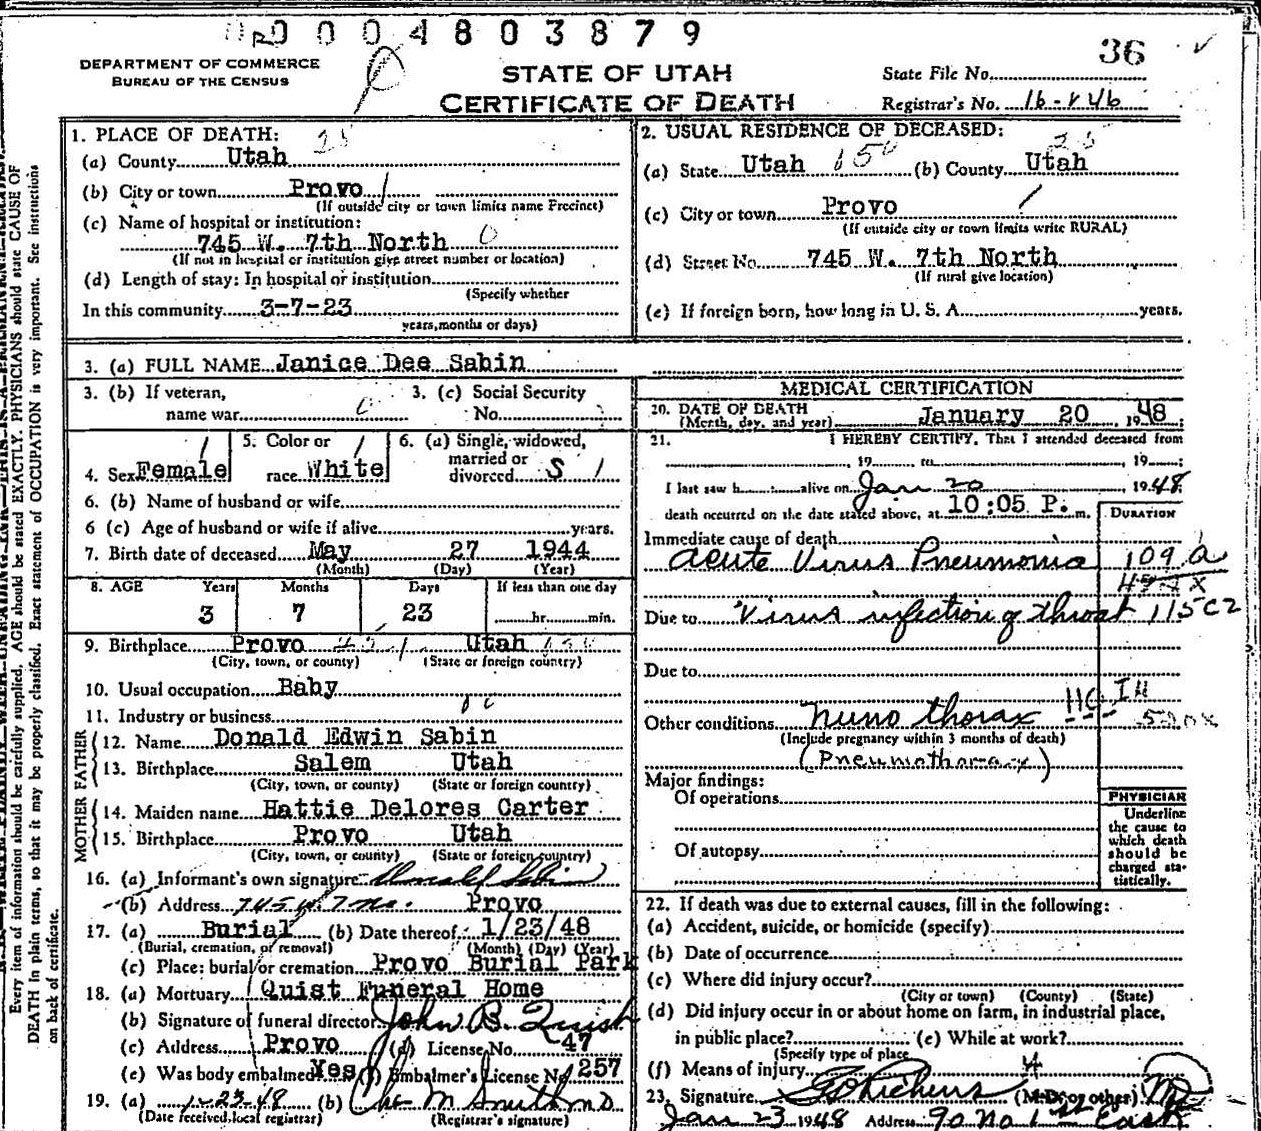 0004803879
36
DEPARTMENT OF COMMERCE
BUREAU OF THE CENSUS
STATE OF UTAH
CERTIFICATE OF DEATH
State File No.
Registrar's No. 16-
1. PLACE OF DEATH: 25
(a) County Utah
(b) City or town Provo
(If outside city or town limits name Precinct)
(c) Name of hospital or institution:
745 W. 7th North 0
(If not in hospital or institution give street number or location)
(d) Length of stay: In hospital or institution
(Specify whether
In this community 3-7-23
years, months or days)
2. USUAL RESIDENCE OF DECEASED:
25
(a) State Utah 150 (b) County Utah
(c) City or town Provo
(If outside city or town limits write RURAL)
(d) Street No. 745 W. 7th North
(If rural give location)
(e) If foreign born, how long in U. S. A. years.
3. (a) FULL NAME Janice Dee Sabin
3. (b) If veteran,
name war 0
3. (c) Social Security
No.
4. Sex Female 1
5. Color or
race White 1
6. (a) Single, widowed,
married or
divorced S 1
6. (b) Name of husband or wife
6 (c) Age of husband or wife if alive years.
7. Birth date of deceased May 27 1944
(Month) (Day) (Year)
8. AGE Years Months Days If less than one day
3 7 23 hr. min.
9. Birthplace Provo Utah
(City, town, or county) (State or foreign country)
10. Usual occupation Baby
11. Industry or business
FATHER
12. Name Donald Edwin Sabin
13. Birthplace Salem Utah
(City, town, or county) (State or foreign country)
MOTHER
14. Maiden name Hattie Delores Carter
15. Birthplace Provo Utah
(City, town, or county) (State or foreign country)
16. (a) Informant's own signature Donald Sabin
(b) Address 745 W. 7 No. Provo
17. (a) Burial (b) Date thereof 1/23/48
(Burial, cremation, or removal) (Month) (Day) (Year)
(c) Place: burial or cremation Provo Burial Park
18. (a) Mortuary Quist Funeral Home
(b) Signature of funeral director John B. Quist
(c) Address Provo (d) License No. 47
(e) Was body embalmed Yes (f) Embalmer's License No 257
19. (a) 1-23-48 (b) Chs M Smith MD
(Date received local registrar) (Registrar's signature)
MEDICAL CERTIFICATION
20. DATE OF DEATH
(Month, day, and year) January 20 , 1948;
21. I HEREBY CERTIFY, That I attended deceased from
, 19 , to , 19 ;
I last saw h alive on Jan 20 , 1948
death occurred on the date stated above, at 10:05 P. m.
DURATION
Immediate cause of death
acute Virus Pneumonia 109 a
Due to Virus infection of throat 115 c2
Due to
Other conditions numo thorax 110
(Include pregnancy within 3 months of death)
(Pneumothorax)
Major findings:
Of operations
Of autopsy
PHYSICIAN
Underline
the cause to
which death
should be
charged sta-
tistically.
22. If death was due to external causes, fill in the following:
(a) Accident, suicide, or homicide (specify)
(b) Date of occurrence
(c) Where did injury occur?
(City or town) (County) (State)
(d) Did injury occur in or about home on farm, in industrial place,
in public place? (e) While at work?
(Specify type of place
(f) Means of injury 4
23. Signature (M.D. or other) MD
Jan 23 1948 Address 90 No 1st East
Every item of information should be carefully supplied. AGE should be stated EXACTLY. PHYSICIANS should state CAUSE OF
DEATH in plain terms, so that it may be properly classified. Exact statement of OCCUPATION is very important. See instructions
on back of certificate.